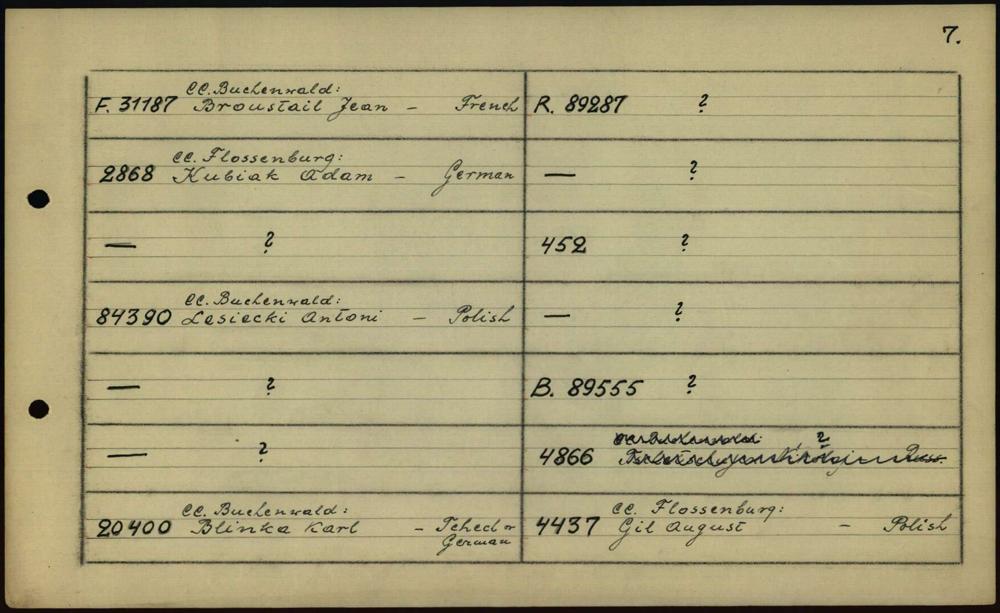 7.
CC. Buchenwald:
F. 31187 Broustail Jean – French
R. 89287 ?
CC. Flossenburg:
2868 Kubiak Adam – German
— ?
— ?
452 ?
CC. Buchenwald:
84390 Lesiecki Antoni – Polish
— ?
— ?
B. 89555 ?
— ?
?
4866
CC. Buchenwald:
20400 Blinka Karl – Tched or
German
CC. Flossenburg:
4437 Gil August – Polish